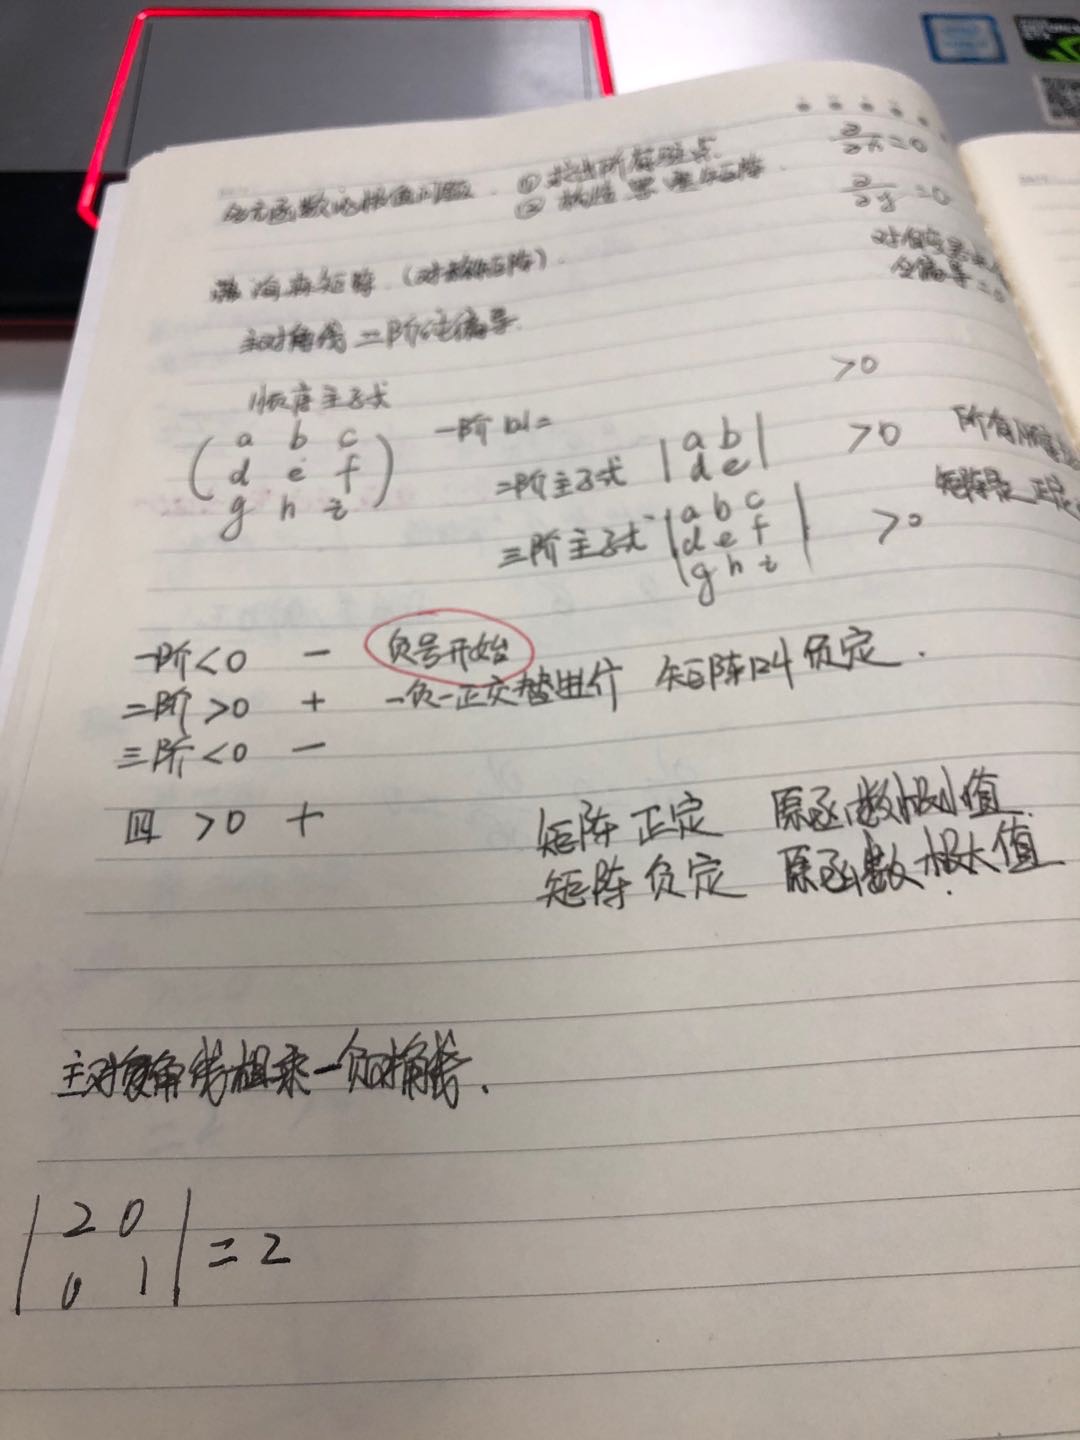 多元函数的极值问题. ① 找出所有驻点.
② 构造 黑塞矩阵.
∂/∂x =0
∂/∂y =0
对每个变量
全偏导=0
黑 海森矩阵 (对称矩阵).
主对角线 二阶纯偏导.
顺序主子式
( a b c
d e f
g h i )
一阶 |a| = >0
二阶主子式 | a b
d e | >0
三阶主子式 | a b c
d e f
g h i | >0
所有顺序
矩阵是 正定.
一阶<0 - 负号开始
二阶>0 + 一负一正交替进行 矩阵叫 负定.
三阶<0 -
四 >0 +
矩阵 正定 原函数极小值
矩阵 负定 原函数极大值.
主对角线相乘-负对角线.
| 2 0
0 1 | = 2